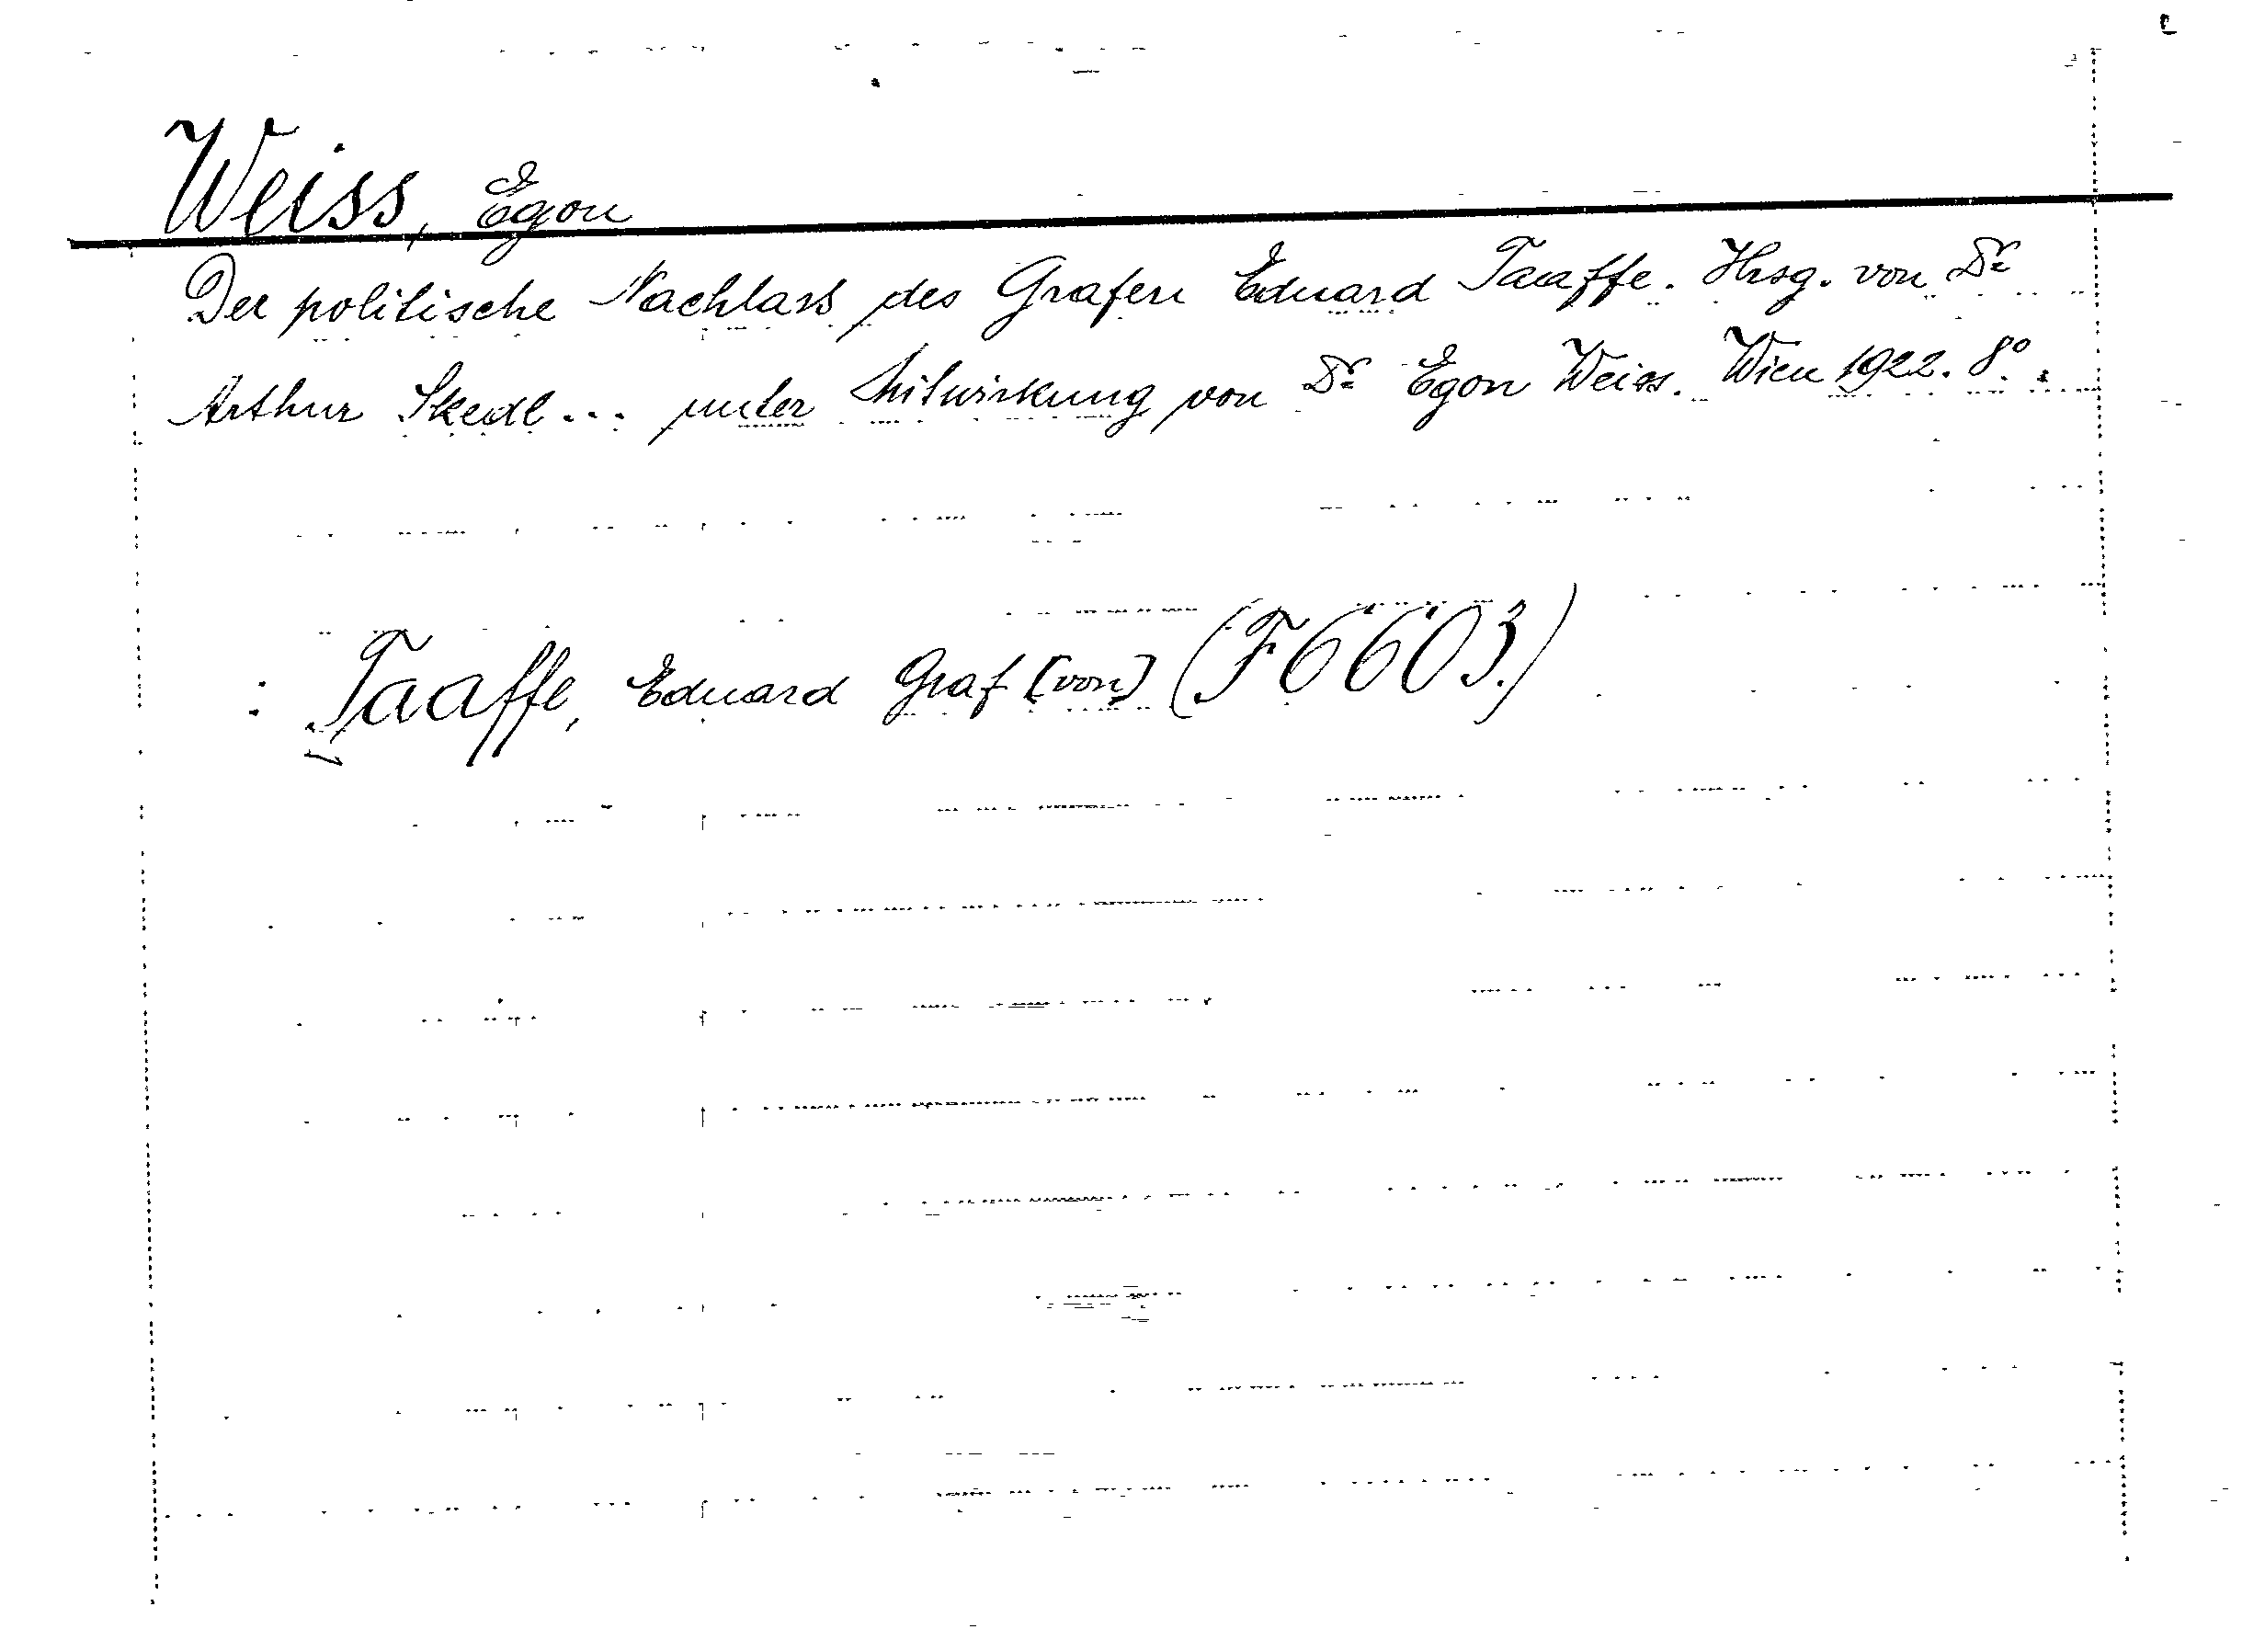 Weiss, Egon
Der politische Nachlass des Grafen Eduard Taaffe. Hrsg. von Dr
Arthur Skedl... unter Mitwirkung von Dr Egon Weiss. Wien 1922. 8°.
: Taaffe, Eduard Graf [von] (F6603.)